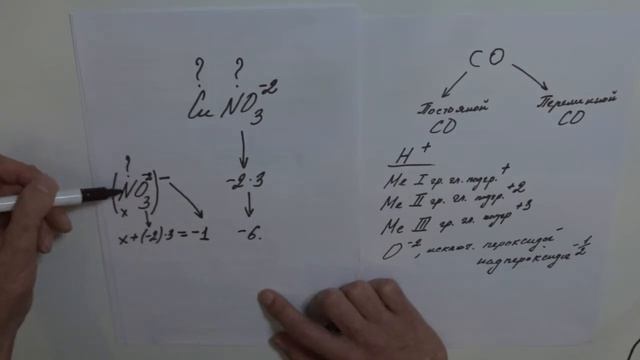 ? ?
CuNO₃⁻²
-2·3
-6.
?
(NO₃⁻²)⁻
x
x+(-2)·3=-1
CO
Постоянной
CO
Переменной
CO
H⁺
Me I гр. гл. подгр.⁺
Me II гр. гл. подгр.⁺²
Me III гр. гл. подгр⁺³
O⁻², исключ. пероксиды⁻
надпероксиды⁻¹/²